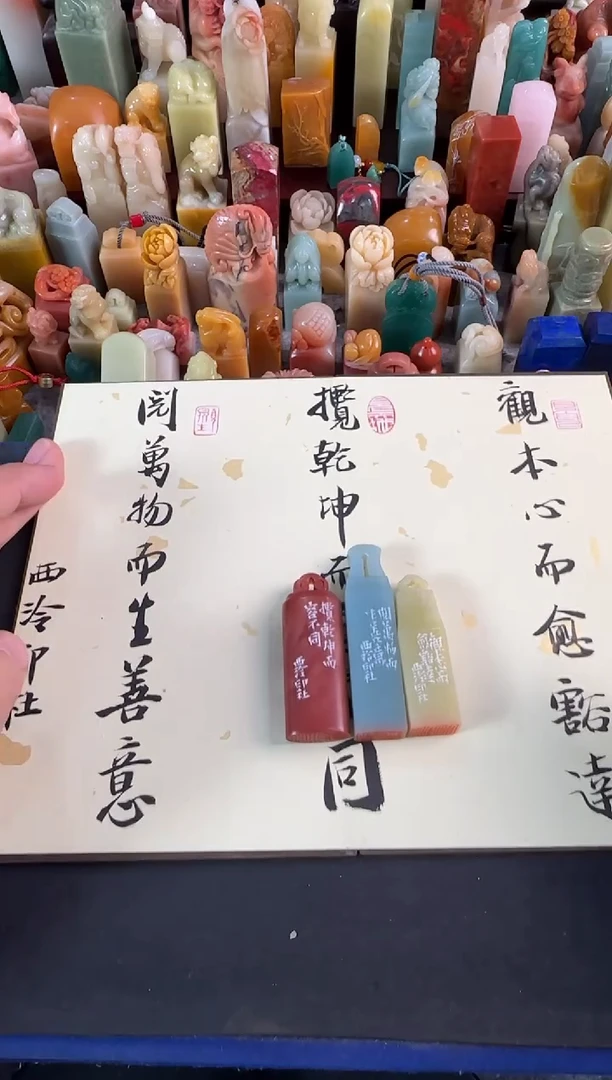 觀本心而愈豁達
攬乾坤而
同
閱萬物而生善意
西泠印社
攬乾坤而
豈不同
西泠印社
閱萬物而
生善意
西泠印社
西泠印社